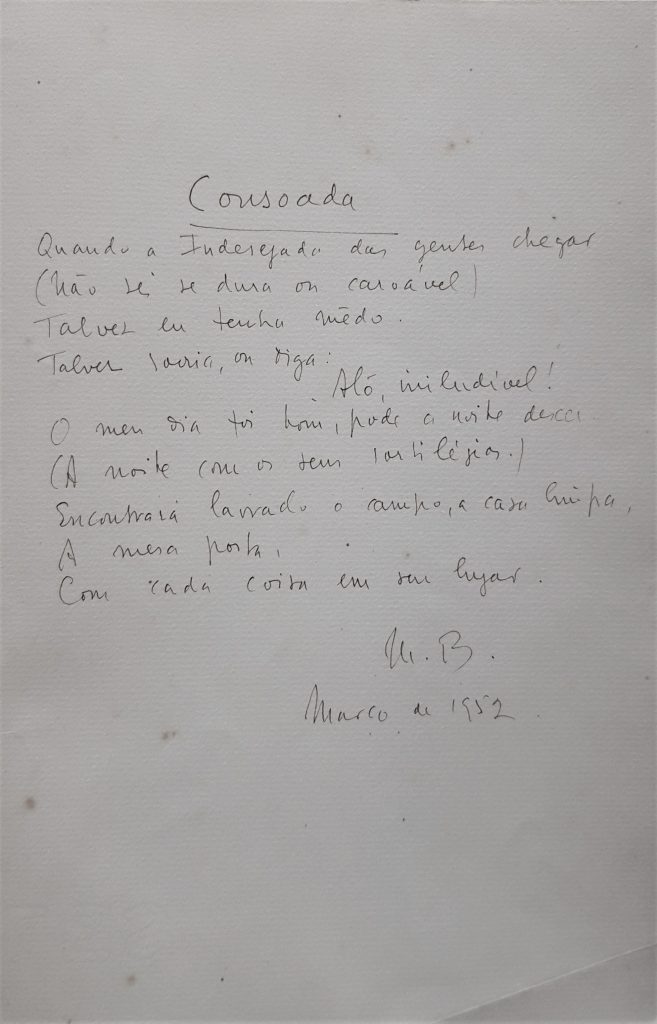 Consoada
Quando a Indesejada das gentes chegar
(Não sei se dura ou caroável)
Talvez eu tenha mêdo.
Talvez sorria, ou diga:
Alô, iniludível!
O meu dia foi bom, pode a noite descer.
(A noite com os seus sortilégios.)
Encontrará lavrado o campo, a casa limpa,
A mesa posta,
Com cada coisa em seu lugar.
M. B.
Março de 1952